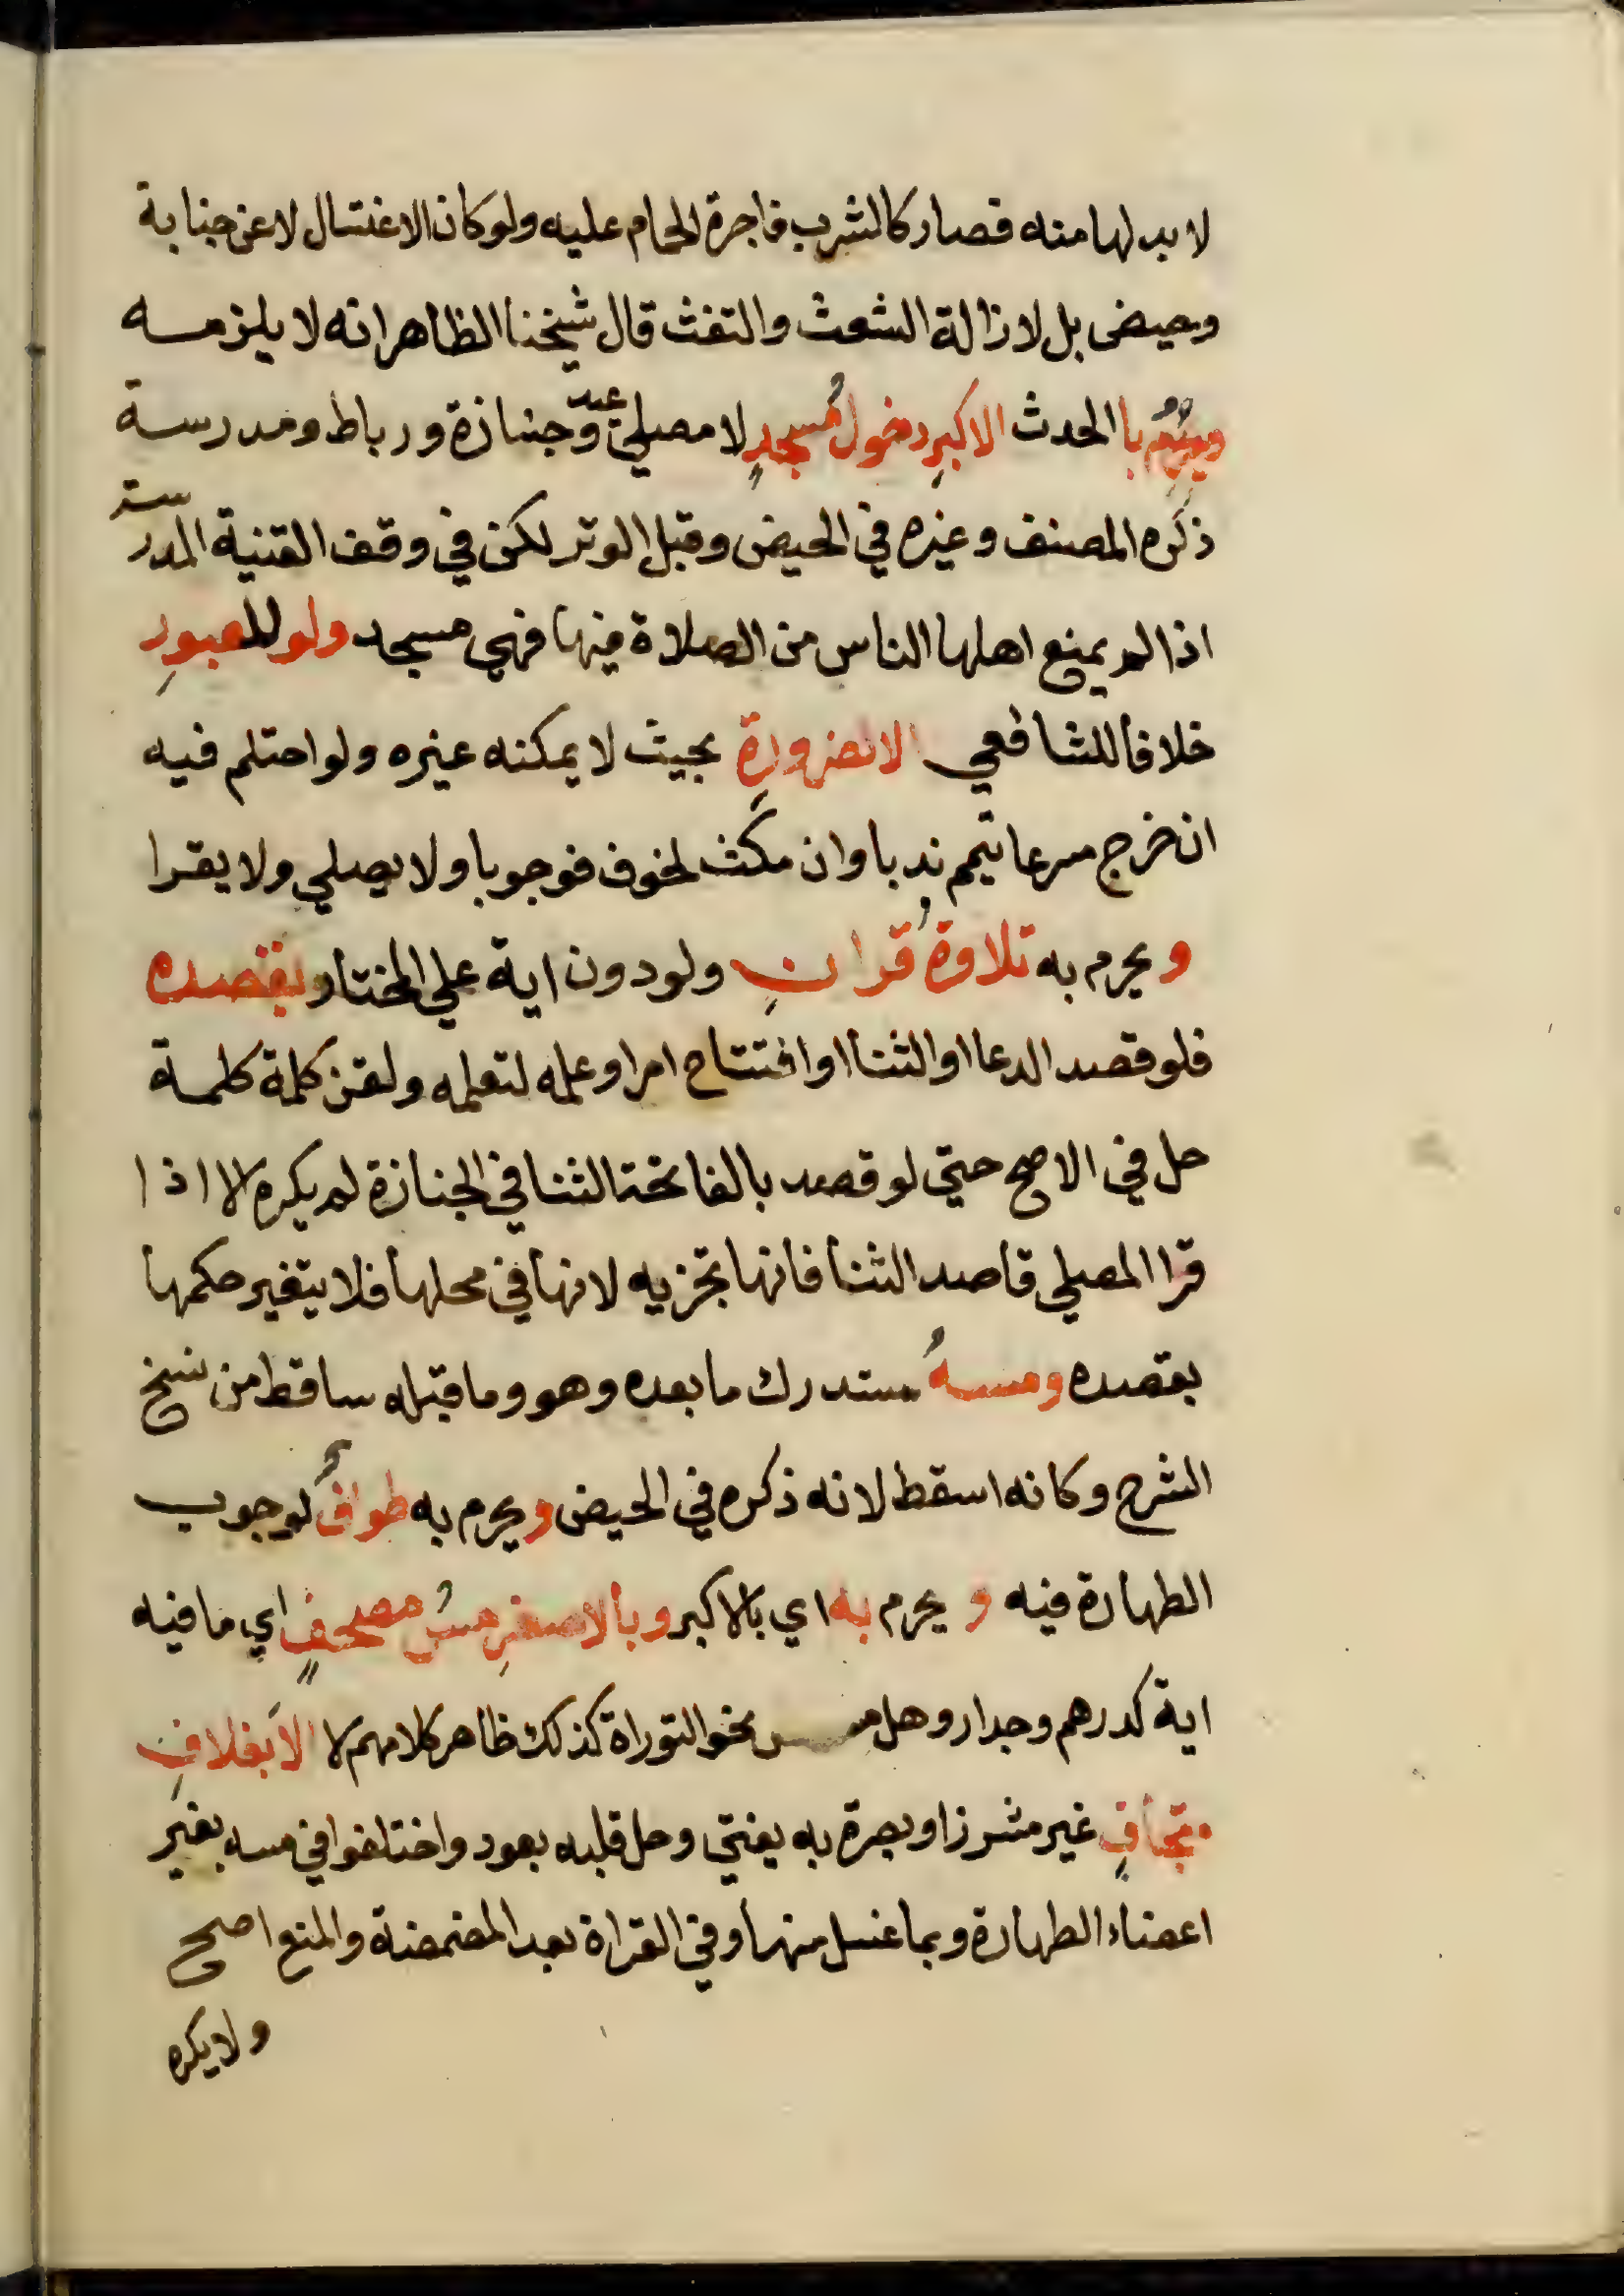 لا بد لها منه فصار كالشرب فاجرة الحمام عليه ولو كان الاغتسال لا عن جنابة
وحيض بل لازالة الشعث والتفث قال شيخنا الظاهر انه لا يلزمه
ويحرُم بالحدث الاكبرِ دخولُ مسجدٍ لا مصلي عيد وجنازة ورباط ومدرسة
ذكره المصنف وغيره في الحيض وقبل الوتر لكن في وقف القنية المدرسة
اذا لم يمنع اهلها الناس من الصلاة فيها فهي مسجد ولو للعبورِ
خلافا للشافعي الا لضرورةِ بحيث لا يمكنه غيره ولو احتلم فيه
ان خرج مسرعا تيمم ندبا وان مكث لخوف فوجوبا ولا يصلي ولا يقرا
و يحرم به تلاوةُ قرانٍ ولو دون اية علي المختار بقصده
فلو قصد الدعا او الثنا او افتتاح امر او علمه لتعليمه ولقن كلمة كلمة
حل في الاصح حتي لو قصد بالفاتحة الثنا في الجنازة لم يكره الا اذا
قرا المصلي قاصد الثنا فانها تجزيه لانها في محلها فلا يتغير حكمها
بقصده ومسهُ مستدرك ما بعده وهو وما قبله ساقط من نسخ
الشرح وكانه اسقط لانه ذكره في الحيض ويحرم به طوافٌ لوجوب
الطهارة فيه و يحرم به اي بالاكبر وبالاصغرِ مسُ مصحفٍ اي ما فيه
اية كدرهم وجدار وهل مس نحو التوراة كذلك ظاهر كلامهم لا الا بغلافِ
متجافٍ غير مشرز او بصرة به يفتي وحل قلبه بعود واختلفوا في مسه بغير
اعضاء الطهارة وبما غسل منها وفي القراة بعد المضمضة والمنع اصح
ولا يكره